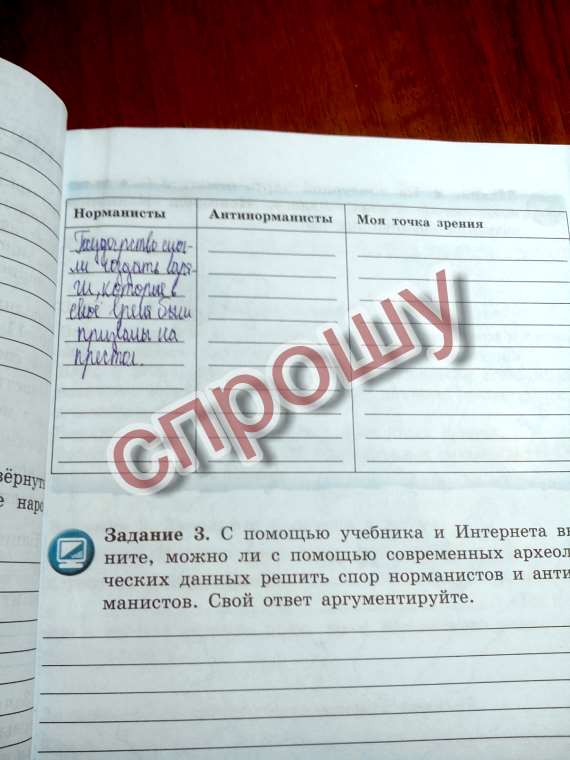 Норманисты
Антинорманисты
Моя точка зрения
Государство смог-
ли создать варя-
ги, которые в
своё время были
призваны на
престол.
спрошу
вёрнуть
е наро
Задание 3. С помощью учебника и Интернета вы
ните, можно ли с помощью современных археол
ческих данных решить спор норманистов и анти
манистов. Свой ответ аргументируйте.